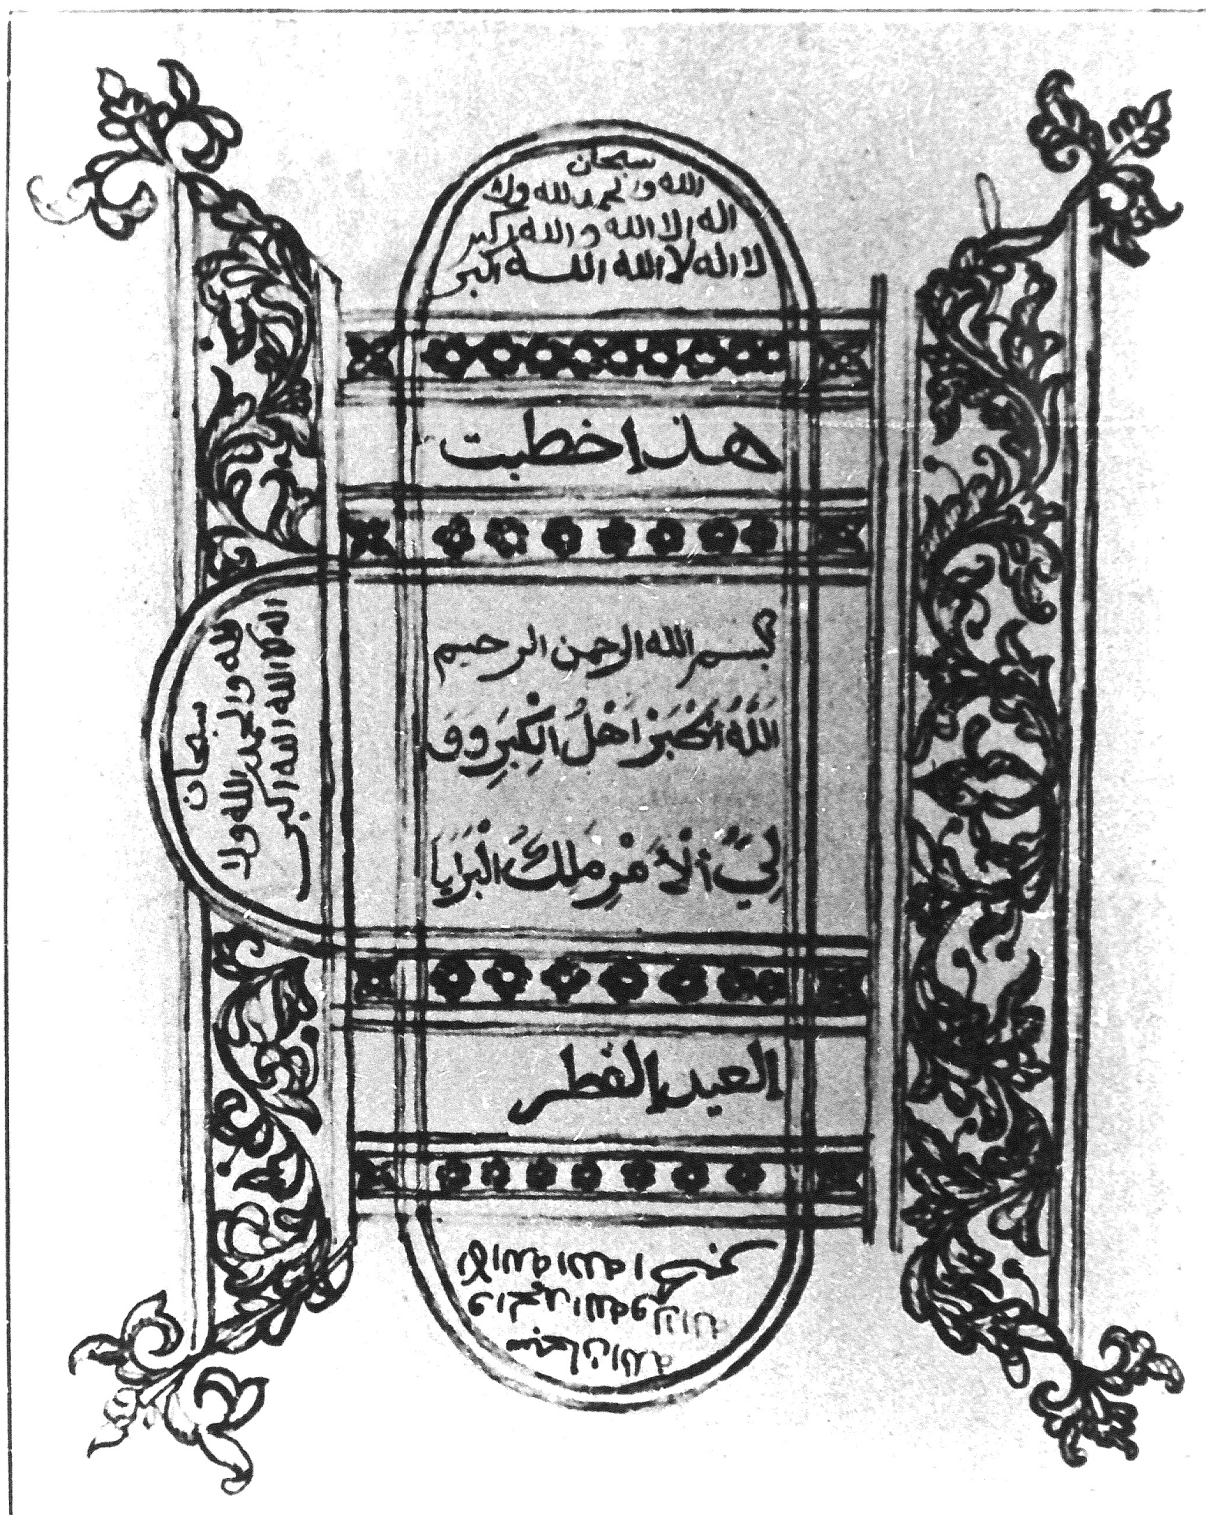 سبحان
الله والحمد لله ولا
اله الا الله والله اكبر
لا اله الا الله الله اكبر
هذا خطبت
بسم الله الرحمن الرحيم
اَللّٰهُ اَكْبَرْ اَهْلُ الْكِبَرِ وَوَ
لِيُّ ألاَمْرِ مَلِكُ الْبَرَايَا
العيد الفطر
سبحان
الله والحمد لله ولا
اله الا الله الله اكبر
سبحان الله